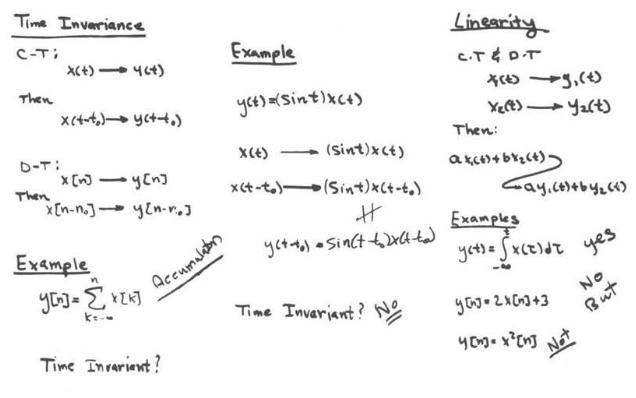 Time Invariance
C-T:
x(t) → y(t)
Then
x(t-t₀) → y(t-t₀)
D-T:
x[n] → y[n]
Then
x[n-n₀] → y[n-n₀]
Example
y[n] = ∑ₖ₌₋∞ⁿ x[k]
Accumulator
Time Invariant?
Example
y(t) = (sint)x(t)
x(t) → (sint)x(t)
x(t-t₀) → (sint)x(t-t₀)
≠
y(t-t₀) = sin(t-t₀)x(t-t₀)
Time Invariant? No
Linearity
C.T & D.T
x₁(t) → y₁(t)
x₂(t) → y₂(t)
Then:
ax₁(t)+bx₂(t)
→ ay₁(t)+by₂(t)
Examples
y(t) = ∫₋∞ᵗ x(τ)dτ yes
y[n] = 2x[n]+3 No But
y[n] = x²[n] Not